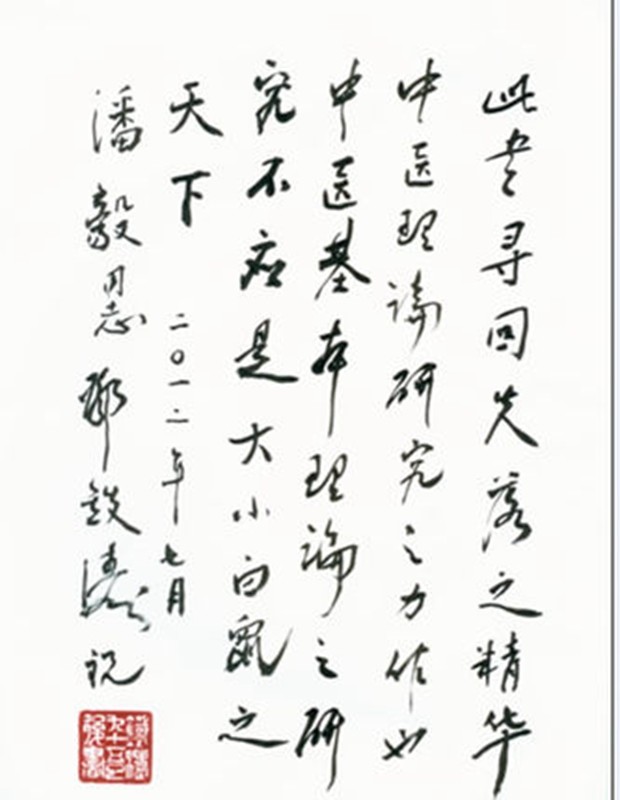 此书寻回失落之精华
中医理論研究之力作也
中医基本理論之研
究不应是大小白鼠之
天下
二〇一二年七月
潘毅同志 邓鉄涛祝